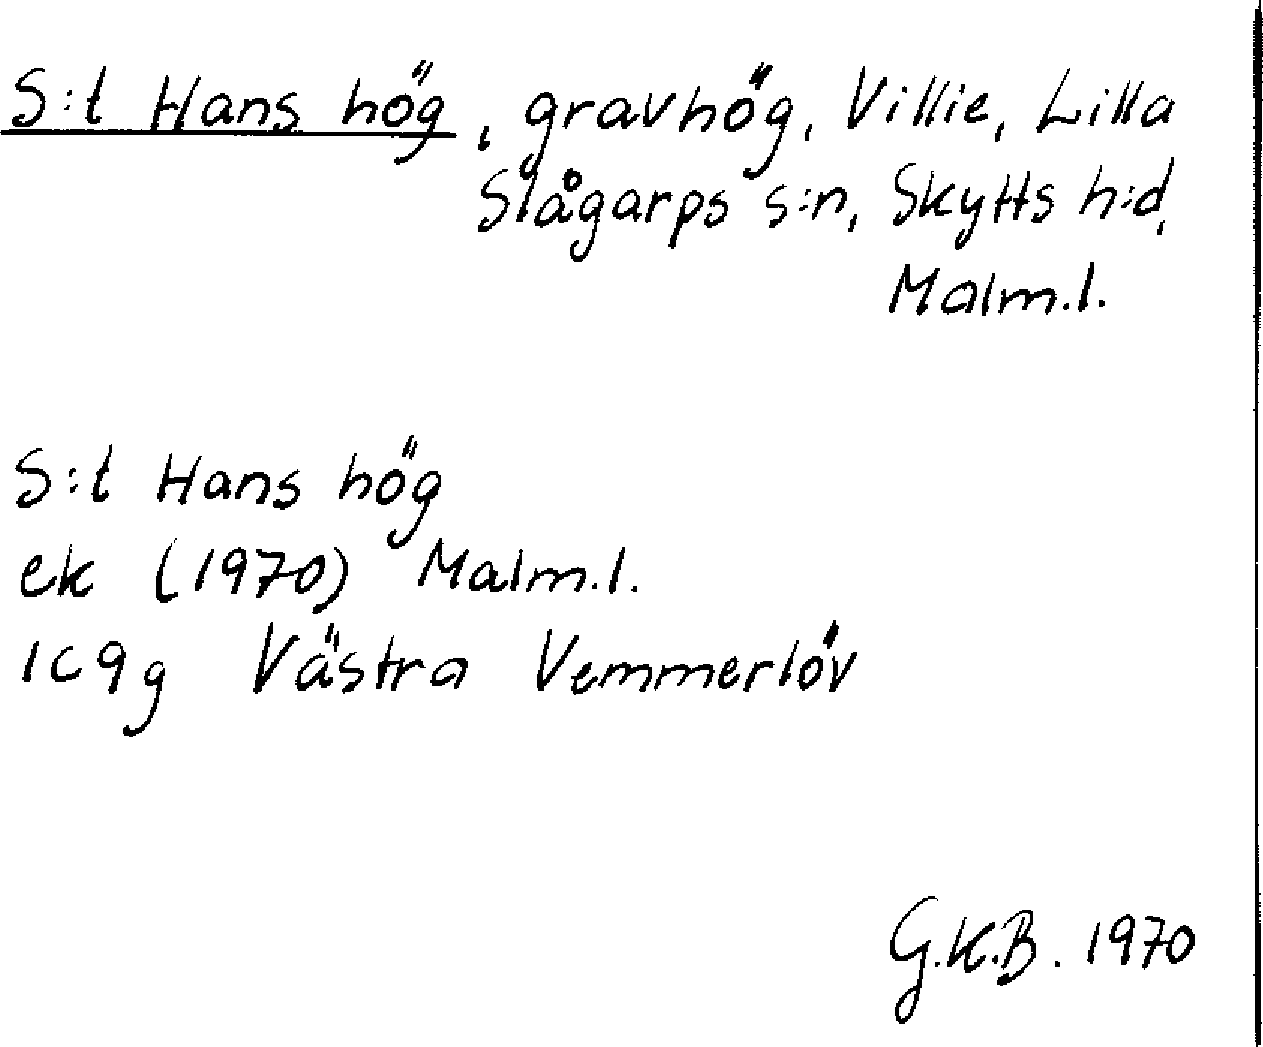 S:t Hans hög, gravhög, Villie, Lilla
Slågarps s:n, Skytts h:d,
Malm.l.
S:t Hans hög
ek (1970) Malm.l.
1C9g Västra Vemmerlöv
G.K.B. 1970